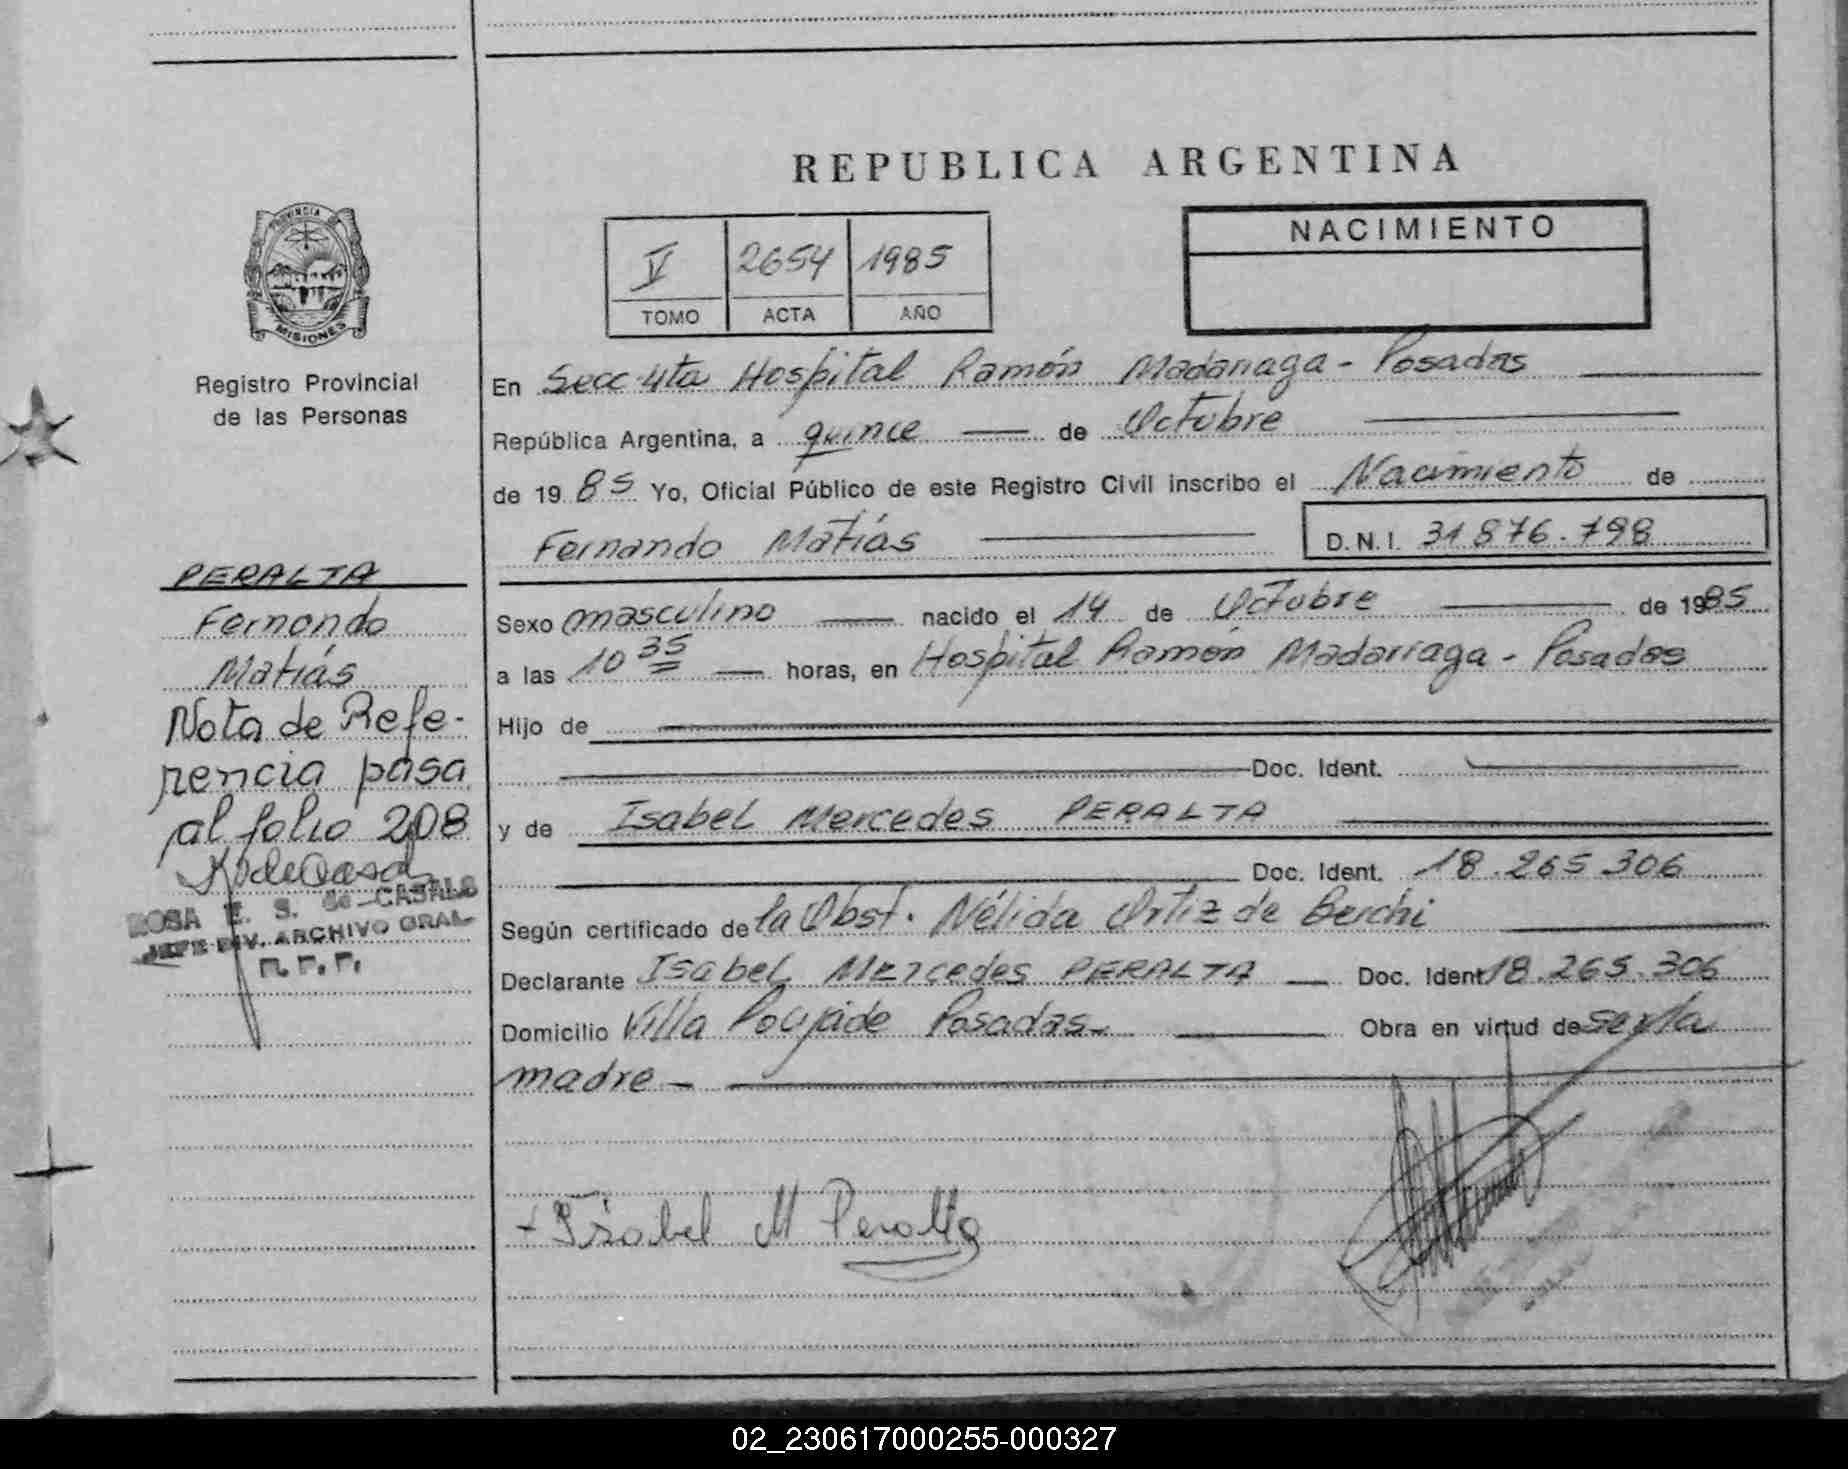 REPUBLICA ARGENTINA
PROVINCIA DE
MISIONES
Registro Provincial
de las Personas
V 2654 1985
TOMO ACTA AÑO
NACIMIENTO
En Secc 4ta Hospital Ramón Madariaga - Posadas
República Argentina, a quince de Octubre
de 1985 Yo, Oficial Público de este Registro Civil inscribo el Nacimiento de
Fernando Matías D.N.I. 31876.798
PERALTA
Fernando
Matías
Nota de Refe-
rencia pasa
al folio 208
ROSA E. S. de CASALS
JEFE DIV. ARCHIVO GRAL
R. P. P.
Sexo masculino nacido el 14 de Octubre de 1985
a las 10 35 horas, en Hospital Ramón Madarraga - Posadas
Hijo de
Doc. Ident.
y de Isabel Mercedes PERALTA
Doc. Ident. 18.265.306
Según certificado de la Obst. Nélida Ortiz de Berchi
Declarante Isabel Mercedes PERALTA Doc. Ident 18.265.306
Domicilio Villa Poujade Posadas Obra en virtud de ser la
madre
Isabel M Peralta
02_230617000255-000327